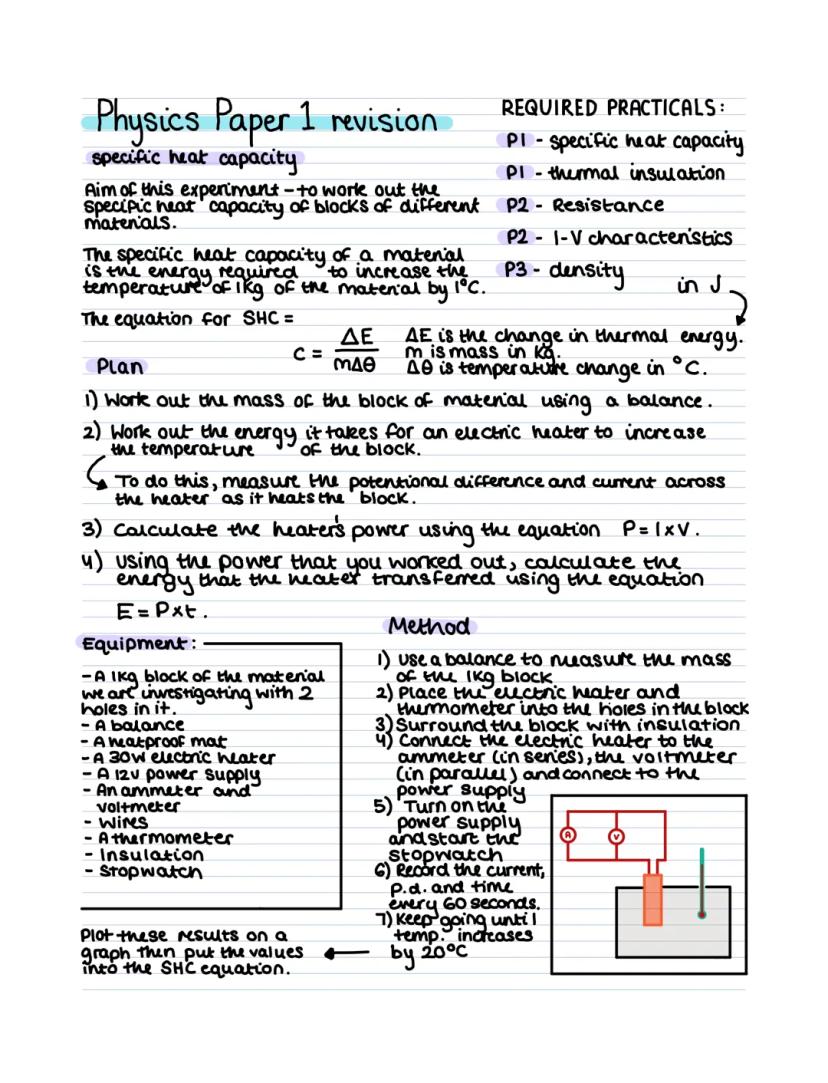 Physics Paper 1 revision
specific heat capacity
Aim of this experiment - to work out the
specific heat capacity of blocks of different
materials.
The specific heat capacity of a material
is the energy required to increase the
temperature of 1Kg of the material by 1°C.
REQUIRED PRACTICALS:
P1 - specific heat capacity
P1 - thermal insulation
P2 - Resistance
P2 - I-V characteristics
P3 - density
in J
The equation for SHC =
c = ΔE / mΔθ
ΔE is the change in thermal energy.
m is mass in Kg.
Δθ is temperature change in °C.
Plan
1) Work out the mass of the block of material using a balance.
2) Work out the energy it takes for an electric heater to increase
the temperature of the block.
To do this, measure the potentional difference and current across
the heater as it heats the block.
3) Calculate the heater's power using the equation P = I x V.
4) Using the power that you worked out, calculate the
energy that the heater transferred using the equation
E = P x t.
Equipment:
- A 1Kg block of the material
we are investigating with 2
holes in it.
- A balance
- A heatproof mat
- A 30W electric heater
- A 12V power supply
- An ammeter and
voltmeter
- Wires
- A thermometer
- Insulation
- Stopwatch
Plot these results on a
graph then put the values
into the SHC equation.
Method
1) Use a balance to measure the mass
of the 1Kg block
2) Place the electric heater and
thermometer into the holes in the block
3) Surround the block with insulation
4) Connect the electric heater to the
ammeter (in series), the voltmeter
(in parallel) and connect to the
power supply
5) Turn on the
power supply
and start the
stopwatch
6) Record the current,
p.d. and time
every 60 seconds.
7) Keep going until
temp. increases
by 20°C
A
V